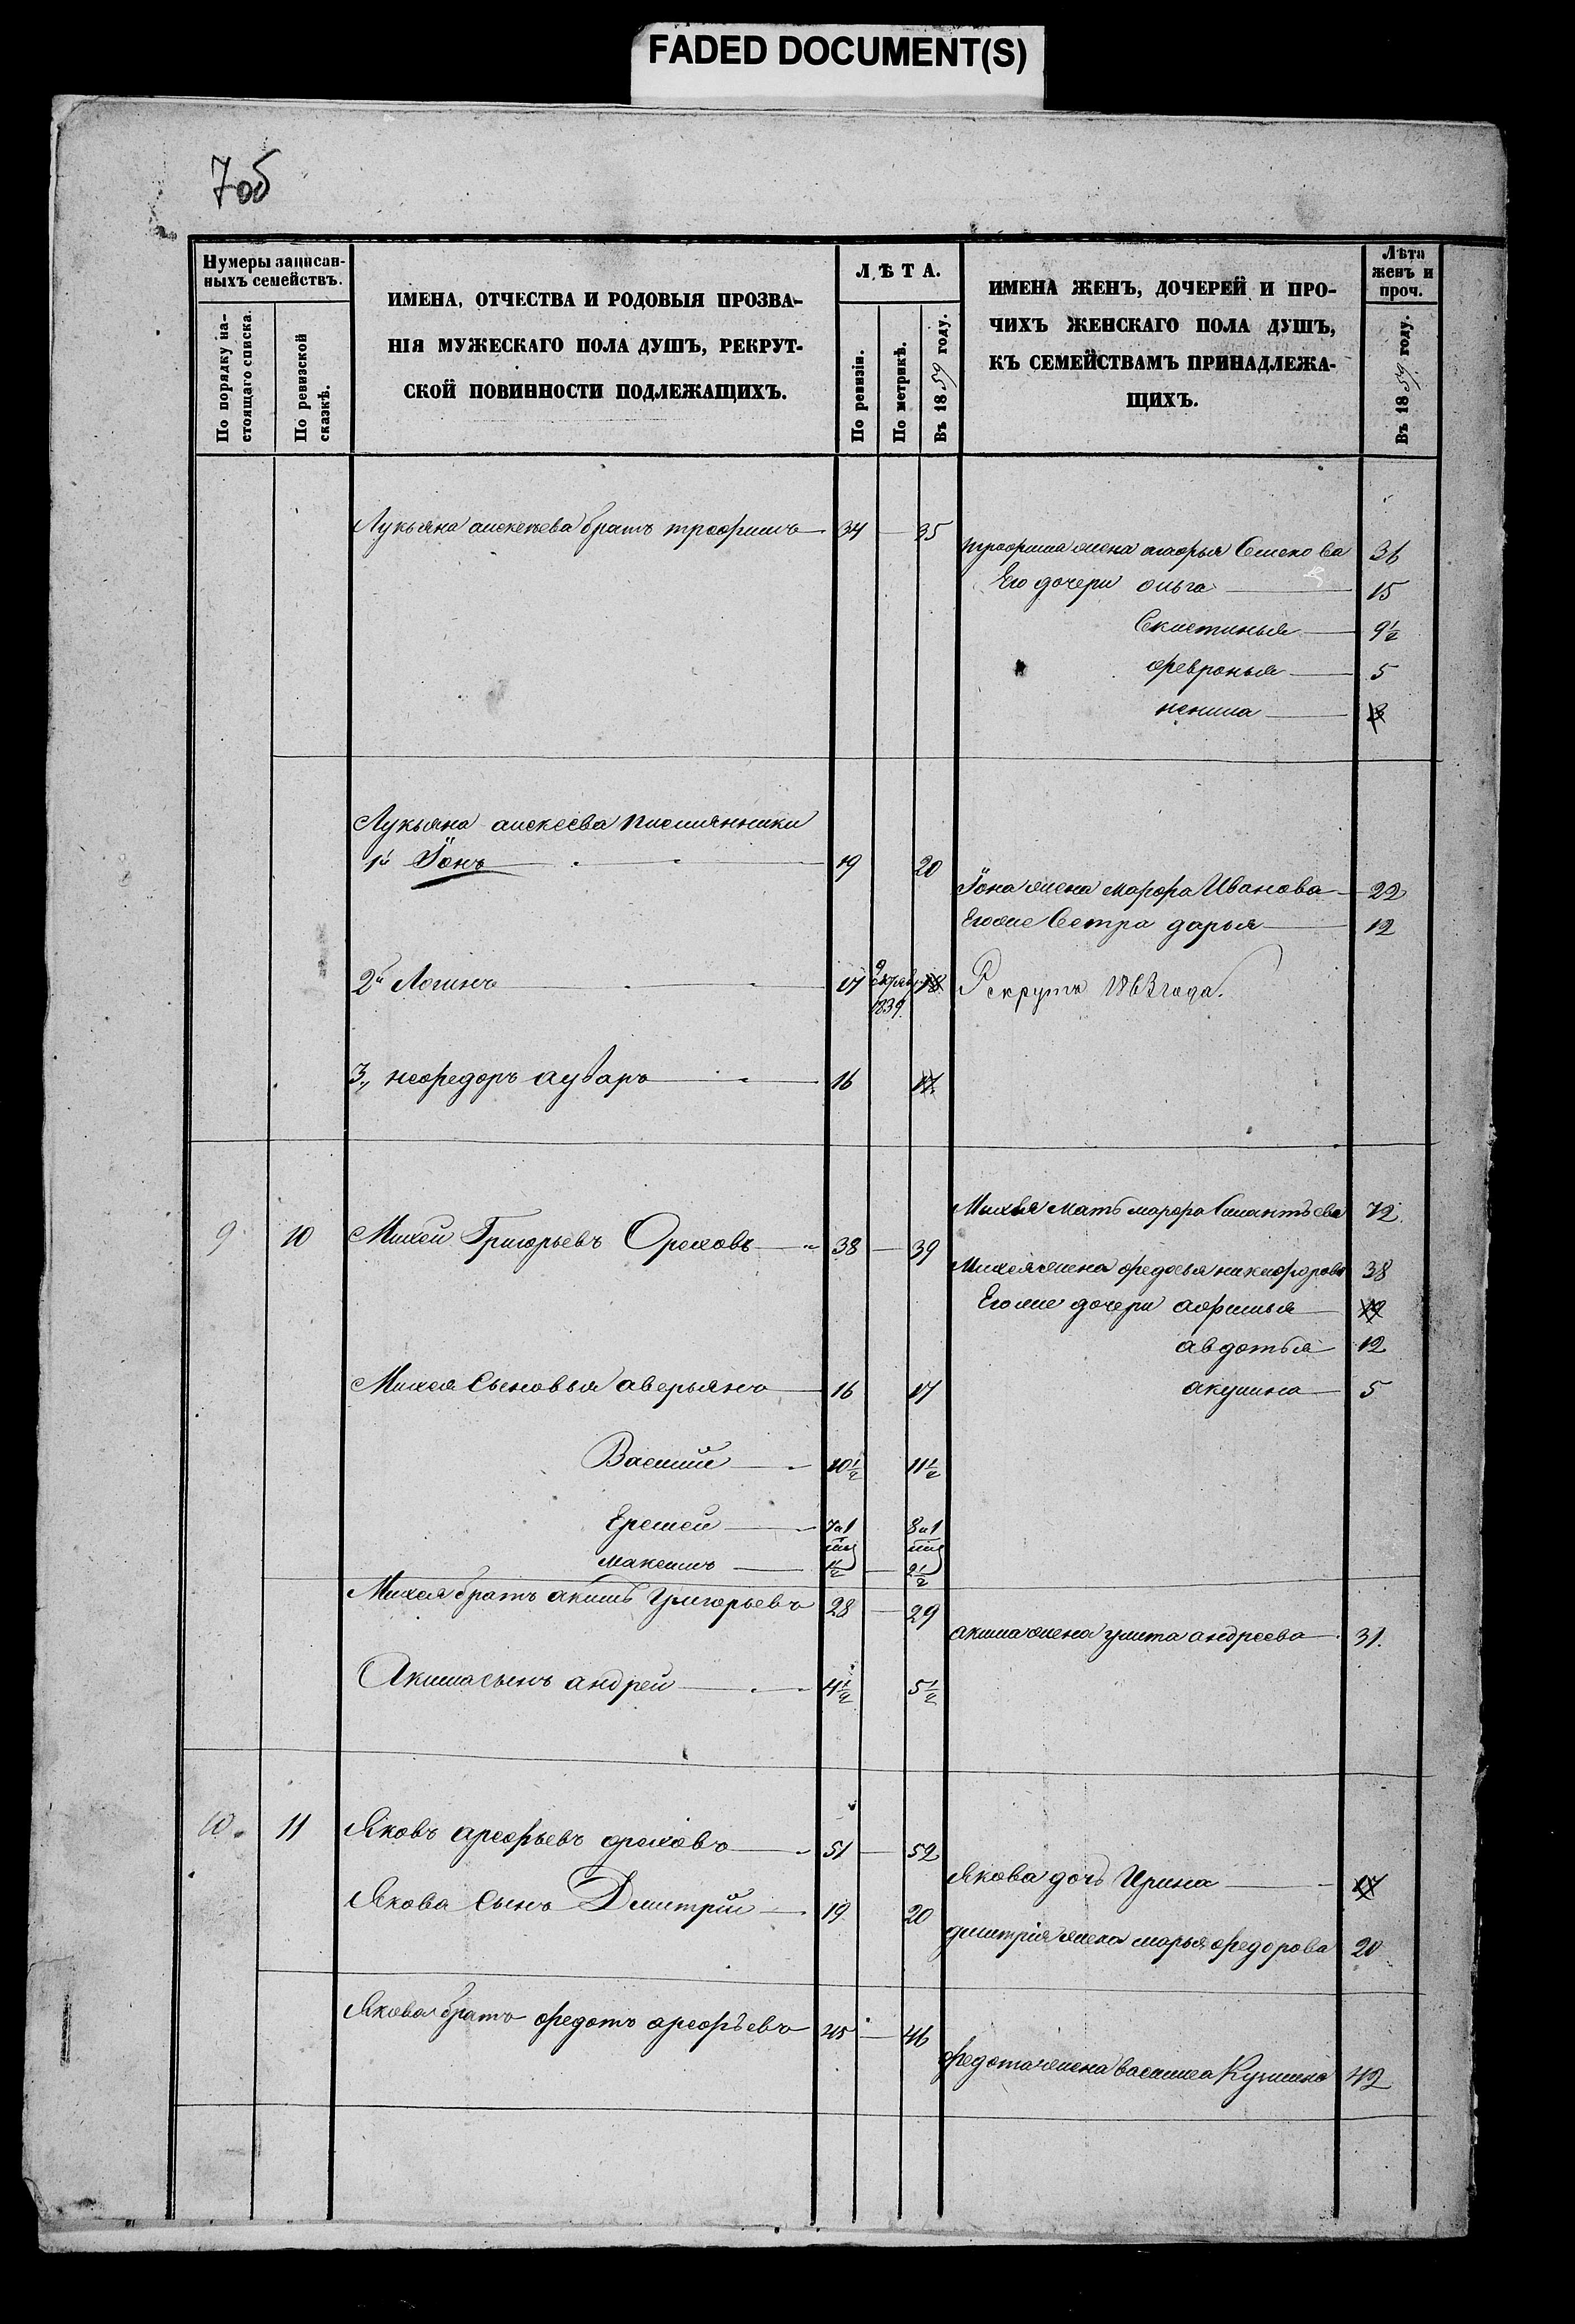 FADED DOCUMENT(S)
7об
Нумеры записан-
ныхъ семействъ.
По порядку на-
стоящаго списка.
По ревизской
сказкѣ.
ИМЕНА, ОТЧЕСТВА И РОДОВЫЯ ПРОЗВА-
НІЯ МУЖЕСКАГО ПОЛА ДУШЪ, РЕКРУТ-
СКОЙ ПОВИННОСТИ ПОДЛЕЖАЩИХЪ.
ЛѢТА.
По ревизіи.
По метрикѣ.
Въ 1859 году.
ИМЕНА ЖЕНЪ, ДОЧЕРЕЙ И ПРО-
ЧИХЪ ЖЕНСКАГО ПОЛА ДУШЪ,
КЪ СЕМЕЙСТВАМЪ ПРИНАДЛЕЖА-
ЩИХЪ.
Лѣта
женъ и
проч.
Въ 1859 году.
Лукьяна алексѣева братъ трофимъ 34 35
трофима жена Семенова 36
Его дочери ольга 15
9½
феврония 5
Лукьяна алексеева племянники
1й Іонъ 19 20
Іона жена марфа Иванова 22
Егоже Сестра дарья 12
2й Логинъ 17 1839 18 Рекрутъ 1863 года.
3, 16 17
Михея мать марфа 72
9 10 Михей Григорьевъ Ореховъ 38 39
Михея жена федосья никифорова 38
Егоже дочери афимья 19
авдотья 12
Михея Сыновья аверьянъ 16 17 акулина 5
Василий 10½ 11½
Еремей 7и1 8и1
максимъ 1½ 2½
Михея братъ акимъ Григорьевъ 28 29
акима жена улита андреева 31.
Акима сынъ андрей 4½ 5½
10. 11 Яковъ арефьевъ ореховъ 51 52
Якова дочь Ирина 17
Якова Сынъ Дмитрий 19 20
дмитрія жена марья федорова 20
Якова братъ федотъ арефьевъ 45 46
федота жена василиса Кузмина 42